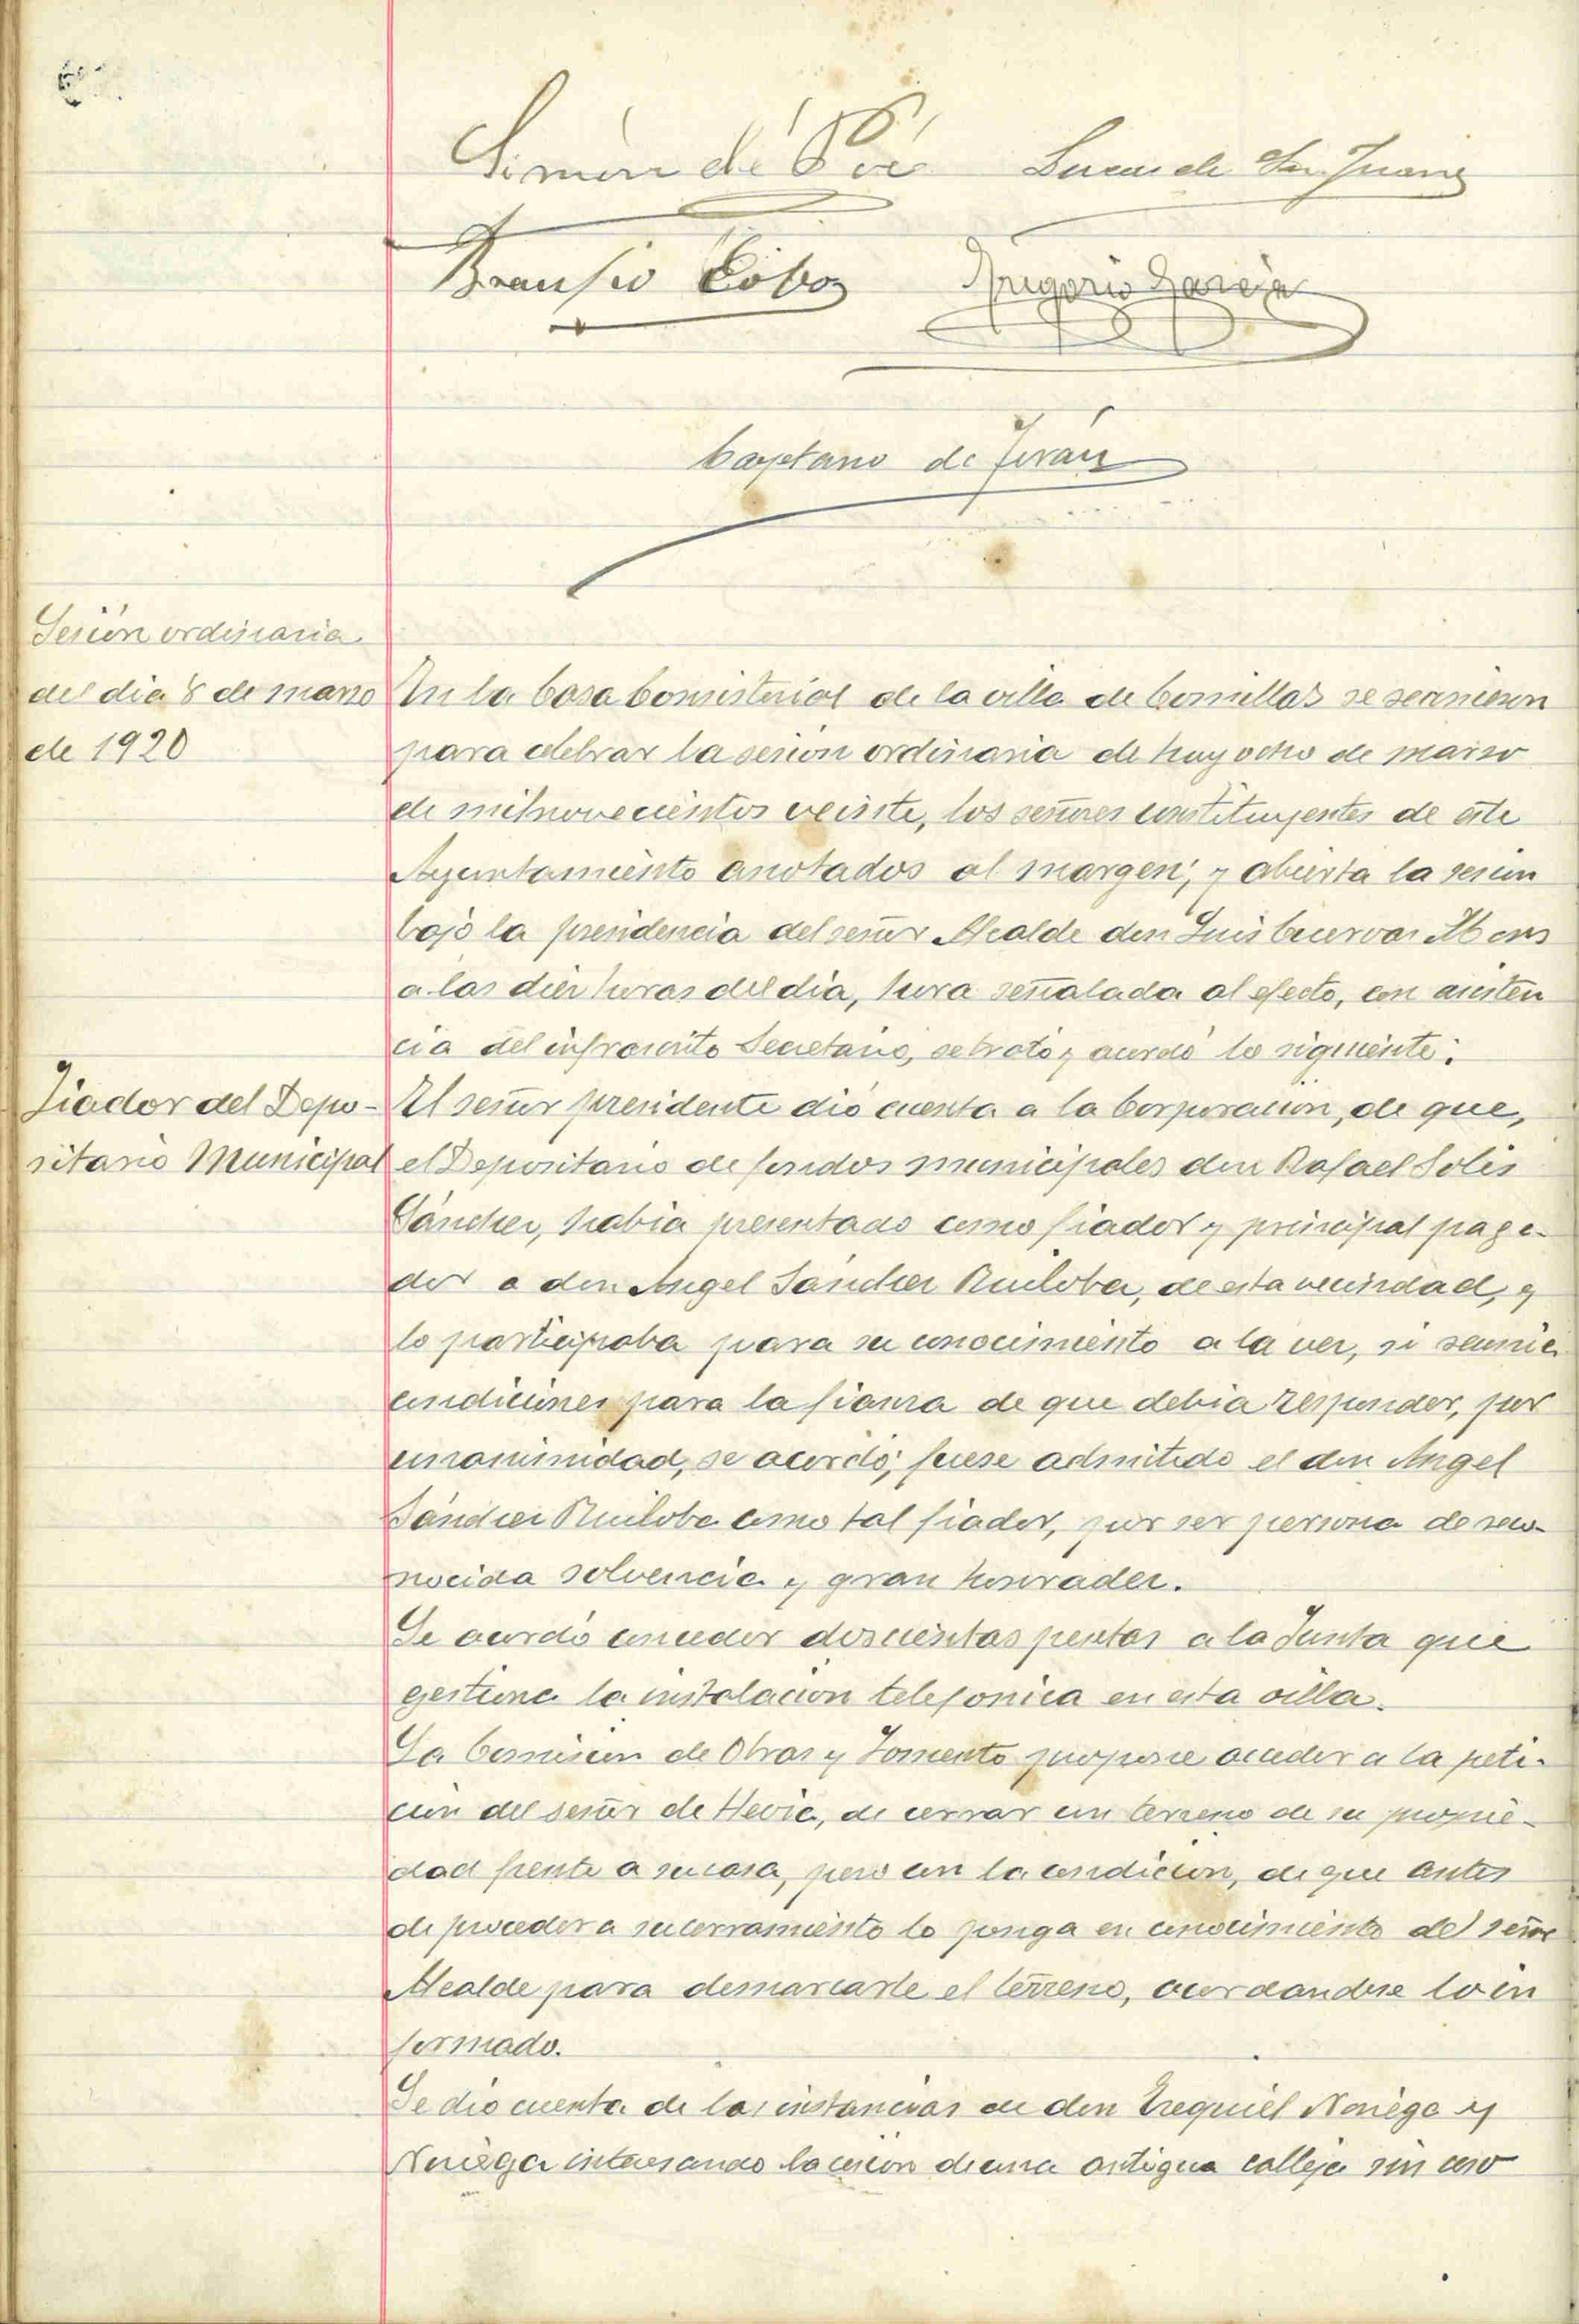 Simón de Poó Lucas de San Juan
Braulio Cobo Gregorio García
Cayetano de Terán
Sesión ordinaria
del dia 8 de marzo
de 1920
En la Casa Consistorial de la villa de Comillas se reunieron
para celebrar la sesion ordinaria de hoy ocho de marzo
de mil novecientos veinte, los señores constituyentes de este
Ayuntamiento anotados al margen, y abierta la sesion
bajo la presidencia del señor Alcalde don Luis Cuervas Mons
a las diez horas del dia, hora señalada al efecto, con asisten
cia del infrascrito Secretario, se trató y acordó lo siguiente:
Fiador del Depo-
sitario Municipal
El señor presidente dió cuenta a la Corporacion, de que,
el Depositario de fondos municipales don Rafael Solis
Sánchez, habia presentado como fiador y principal paga-
dor a don Angel Sanchez Ruiloba, de esta vecindad, y
lo participaba para su conocimiento a la vez, si reunia
condiciones para la fianza de que debia responder, por
unanimidad, se acordó; fuese admitido el don Angel
Sánchez Ruiloba como tal fiador, por ser persona de reco-
nocida solvencia y gran honradez.
Se acordó conceder doscientas pesetas a la Junta que
gestiona la instalacion telefonica en esta villa.
La Comision de Obras y Fomento propone acceder a la peti-
cion del señor de Hevia, de cerrar un terreno de su propie-
dad frente a su casa, pero con la condicion, de que antes
de proceder a su cerramiento lo ponga en conocimiento del señor
Alcalde para demarcarle el terreno, acordandose lo in
formado.
Se dio cuenta de las instancias de don Ezequiel Noriega y
Noriega interesando la cesion de una antigua calleja sin uso